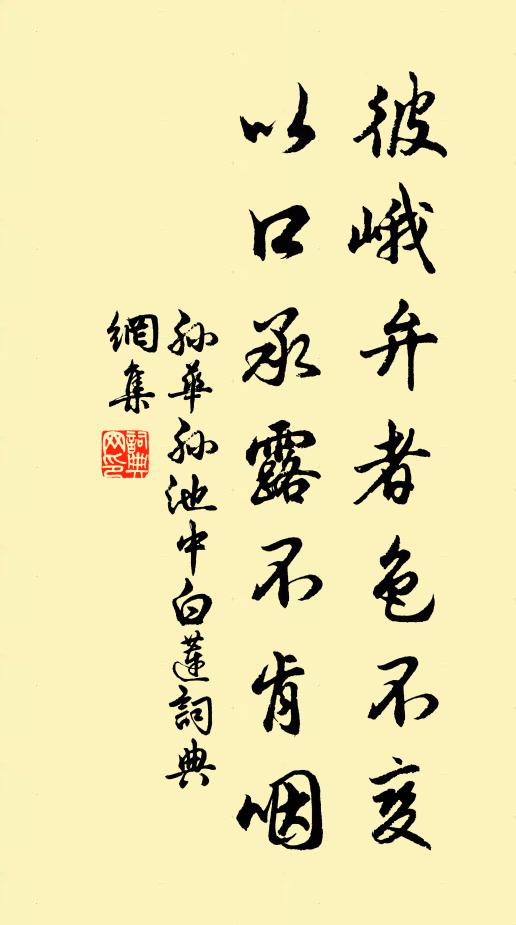 彼峨弁者色不变
以口承露不肯咽
孙華孙池中白蓮詞典
網集
詞典
网印